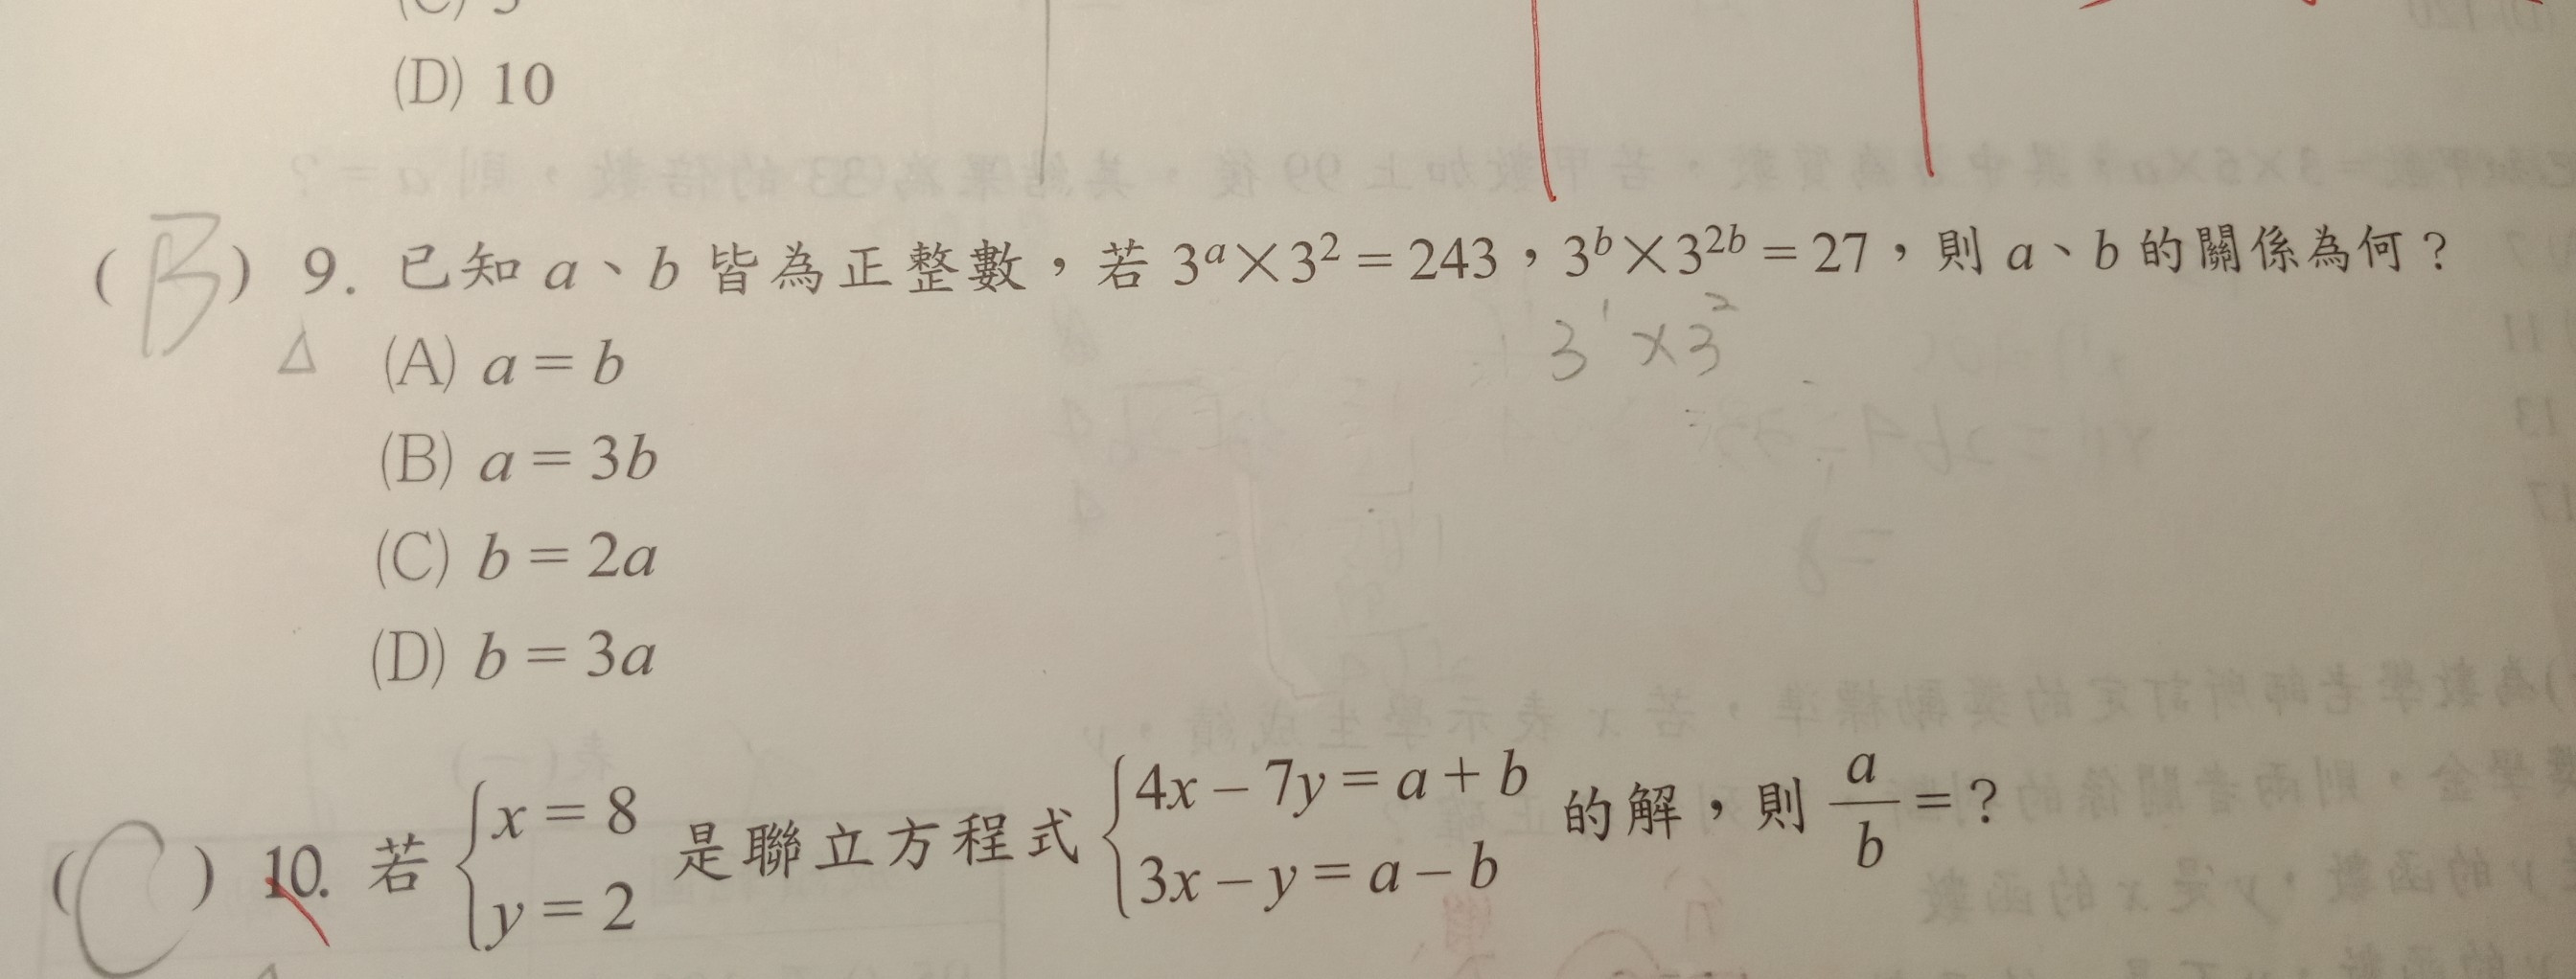 (D) 10
( B ) 9. 已知 a、b 皆為正整數，若 3^a×3^2=243，3^b×3^{2b}=27，則 a、b 的關係為何？
3^1×3^2
△ (A) a=b
(B) a=3b
(C) b=2a
(D) b=3a
( C ) 10. 若 { x=8, y=2 是聯立方程式 { 4x-7y=a+b, 3x-y=a-b 的解，則 a/b=？